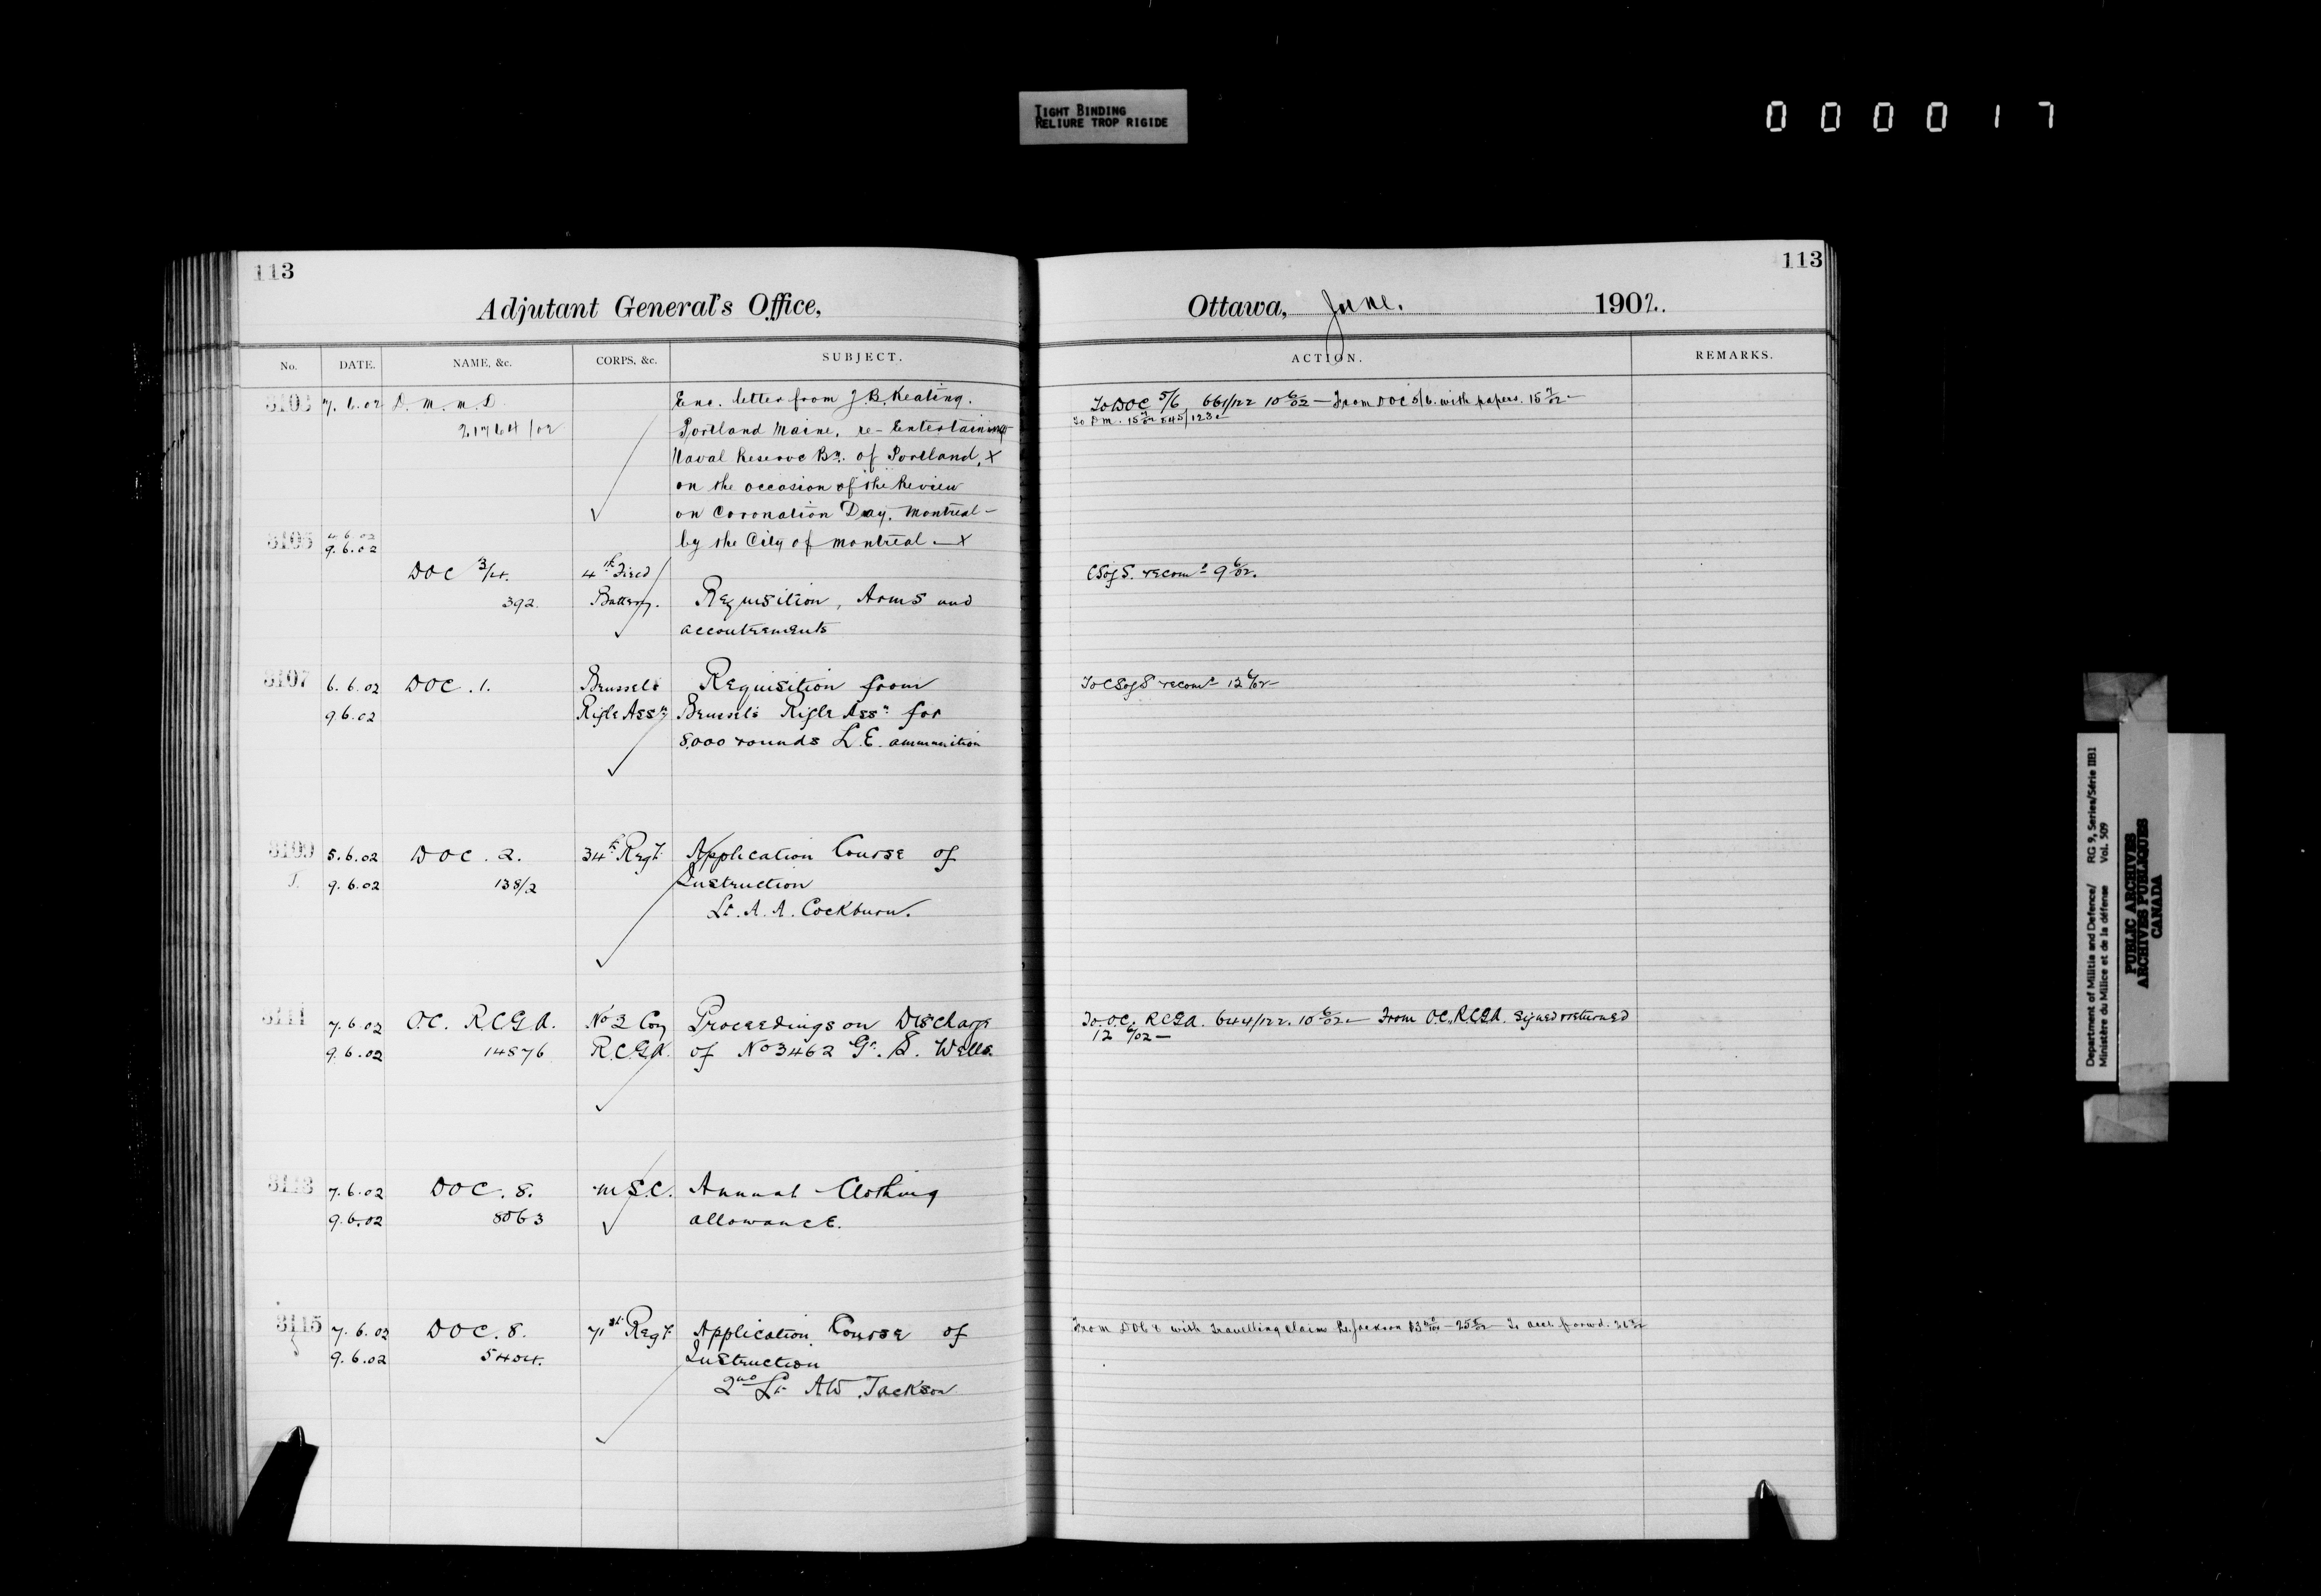 TIGHT BINDING
RELIURE TROP RIGIDE
0 0 0 0 1 7
113
113
Adjutant General's Office,
Ottawa, June. 1902.
No. DATE. NAME, &c. CORPS, &c. SUBJECT.
ACTION. REMARKS.
3103 7.6.02 D.M.M.D. Enc. letter from J.B. Keating.
21764/02 Portland Maine, re- Entertaining
Naval Reserve Bn. of Portland, X
on the occasion of the Review
on Coronation Day. Montreal -
by the City of Montreal - X
To DOC 5/6 661/122 10 6/02 - From DOC 5/6. with papers. 15 7/02 -
3105 4.6.02
9.6.02
DOC 3/4. 4th Field
392. Battery. Requisition, Arms and
accoutrements
CSofS. recomd 9 6/02.
3107 6.6.02 DOC. 1. Brussels Requisition from
9.6.02 Rifle Assn Brussels Rifle Assn for
8,000 rounds L.E. ammunition
To CSofS recomd 12 6/02 -
3109 5.6.02 DOC. 2. 34th Regt. Application Course of
9.6.02 138/2 Instruction
Lt. A. A. Cockburn.
3111 7.6.02 O.C. R.C.G.A. No 2 Coy Proceedings on Discharge
9.6.02 14876 R.C.G.A. of No 3462 Gr. S. Wells
To O.C. R.C.G.A. 644/122. 10 6/02 - From O.C. R.C.G.A. Signed & returned
12 6/02 -
3113 7.6.02 DOC. 8. M.S.C. Annual Clothing
9.6.02 8063 allowance.
3115 7.6.02 DOC. 8. 71st Regt. Application Course of
9.6.02 5404. Instruction
2nd Lt AW Jackson
From DOC 8 with travelling claim Lt. Jackson
Department of Militia and Defence/ RG 9, Series/Série IIB1
Ministère du Milice et de la défense Vol. 509
PUBLIC ARCHIVES
ARCHIVES PUBLIQUES
CANADA